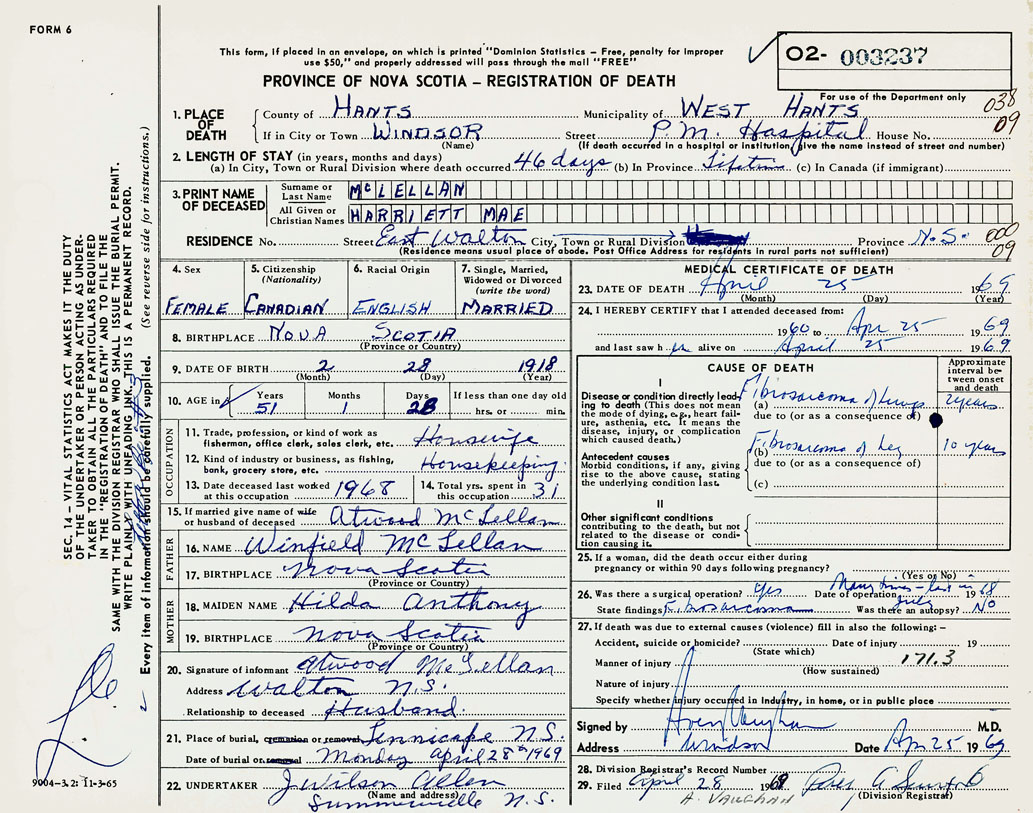 FORM 6
This form, if placed in an envelope, on which is printed "Dominion Statistics – Free, penalty for improper
use $50," and properly addressed will pass through the mail "FREE"
PROVINCE OF NOVA SCOTIA – REGISTRATION OF DEATH
02- 003237
For use of the Department only
038
09
1. PLACE OF DEATH
County of HANTS Municipality of WEST HANTS
If in City or Town WINDSOR Street P.M. Hospital House No.
(Name) (If death occurred in a hospital or institution, give the name instead of street and number)
2. LENGTH OF STAY (in years, months and days)
(a) In City, Town or Rural Division where death occurred 46 days (b) In Province Lifetime (c) In Canada (if immigrant)
3. PRINT NAME OF DECEASED
Surname or Last Name McLELLAN
All Given or Christian Names HARRIETT MAE
RESIDENCE No. Street East Walton City, Town or Rural Division Province N.S.
(Residence means usual place of abode. Post Office Address for residents in rural parts not sufficient)
000
09
4. Sex
FEMALE
5. Citizenship
(Nationality)
CANADIAN
6. Racial Origin
ENGLISH
7. Single, Married,
Widowed or Divorced
(write the word)
MARRIED
8. BIRTHPLACE NOVA SCOTIA
(Province or Country)
9. DATE OF BIRTH 2 28 1918
(Month) (Day) (Year)
10. AGE in
Years Months Days If less than one day old
51 1 28 hrs. or min.
OCCUPATION
11. Trade, profession, or kind of work as
fisherman, office clerk, sales clerk, etc. Housewife
12. Kind of industry or business, as fishing,
bank, grocery store, etc. Housekeeping
13. Date deceased last worked
at this occupation 1968
14. Total yrs. spent in
this occupation 31
15. If married give name of wife
or husband of deceased Atwood McLellan
FATHER
16. NAME Winfield McLellan
17. BIRTHPLACE Nova Scotia
(Province or Country)
MOTHER
18. MAIDEN NAME Hilda Anthony
19. BIRTHPLACE Nova Scotia
(Province or Country)
20. Signature of informant Atwood McLellan
Address Walton N.S.
Relationship to deceased Husband
21. Place of burial, cremation or removal Tennicape N.S.
Date of burial or removal Monday April 28th 1969
22. UNDERTAKER J Wilson Allen
(Name and address)
Summerville N.S.
MEDICAL CERTIFICATE OF DEATH
23. DATE OF DEATH April 25 1969
(Month) (Day) (Year)
24. I HEREBY CERTIFY that I attended deceased from:
1960 to Apr 25 1969
and last saw her alive on April 25 1969
CAUSE OF DEATH
Approximate
interval be-
tween onset
and death
I
Disease or condition directly lead-
ing to death (This does not mean
the mode of dying, e.g., heart fail-
ure, asthenia, etc. It means the
disease, injury, or complication
which caused death.)
(a) Fibrosarcoma of Lungs 2 years
due to (or as a consequence of)
Antecedent causes
Morbid conditions, if any, giving
rise to the above cause, stating
the underlying condition last.
(b) Fibrosarcoma of Leg 10 years
due to (or as a consequence of)
(c)
II
Other significant conditions
contributing to the death, but not
related to the disease or condi-
tion causing it.
25. If a woman, did the death occur either during
pregnancy or within 90 days following pregnancy?
(Yes or No)
26. Was there a surgical operation? Yes Date of operation Many times - last in July 1968
State findings Fibrosarcoma Was there an autopsy? No
27. If death was due to external causes (violence) fill in also the following: –
Accident, suicide or homicide? Date of injury 19
(State which)
Manner of injury 171.3
(How sustained)
Nature of injury
Specify whether injury occurred in Industry, in home, or in public place
Signed by Avery Vaughan M.D.
Address Windsor Date Apr 25 1969
28. Division Registrar's Record Number
29. Filed April 28 1969
(Division Registrar)
A. VAUGHAN
SEC. 14 – VITAL STATISTICS ACT MAKES IT THE DUTY
OF THE UNDERTAKER OR PERSON ACTING AS UNDER-
TAKER TO OBTAIN ALL THE PARTICULARS REQUIRED
IN THE "REGISTRATION OF DEATH" AND TO FILE THE
SAME WITH THE DIVISION REGISTRAR WHO SHALL ISSUE THE BURIAL PERMIT.
WRITE PLAINLY WITH UNFADING INK. THIS IS A PERMANENT RECORD.
Every item of information should be carefully supplied. (See reverse side for instructions.)
9004-3.2: 11-3-65